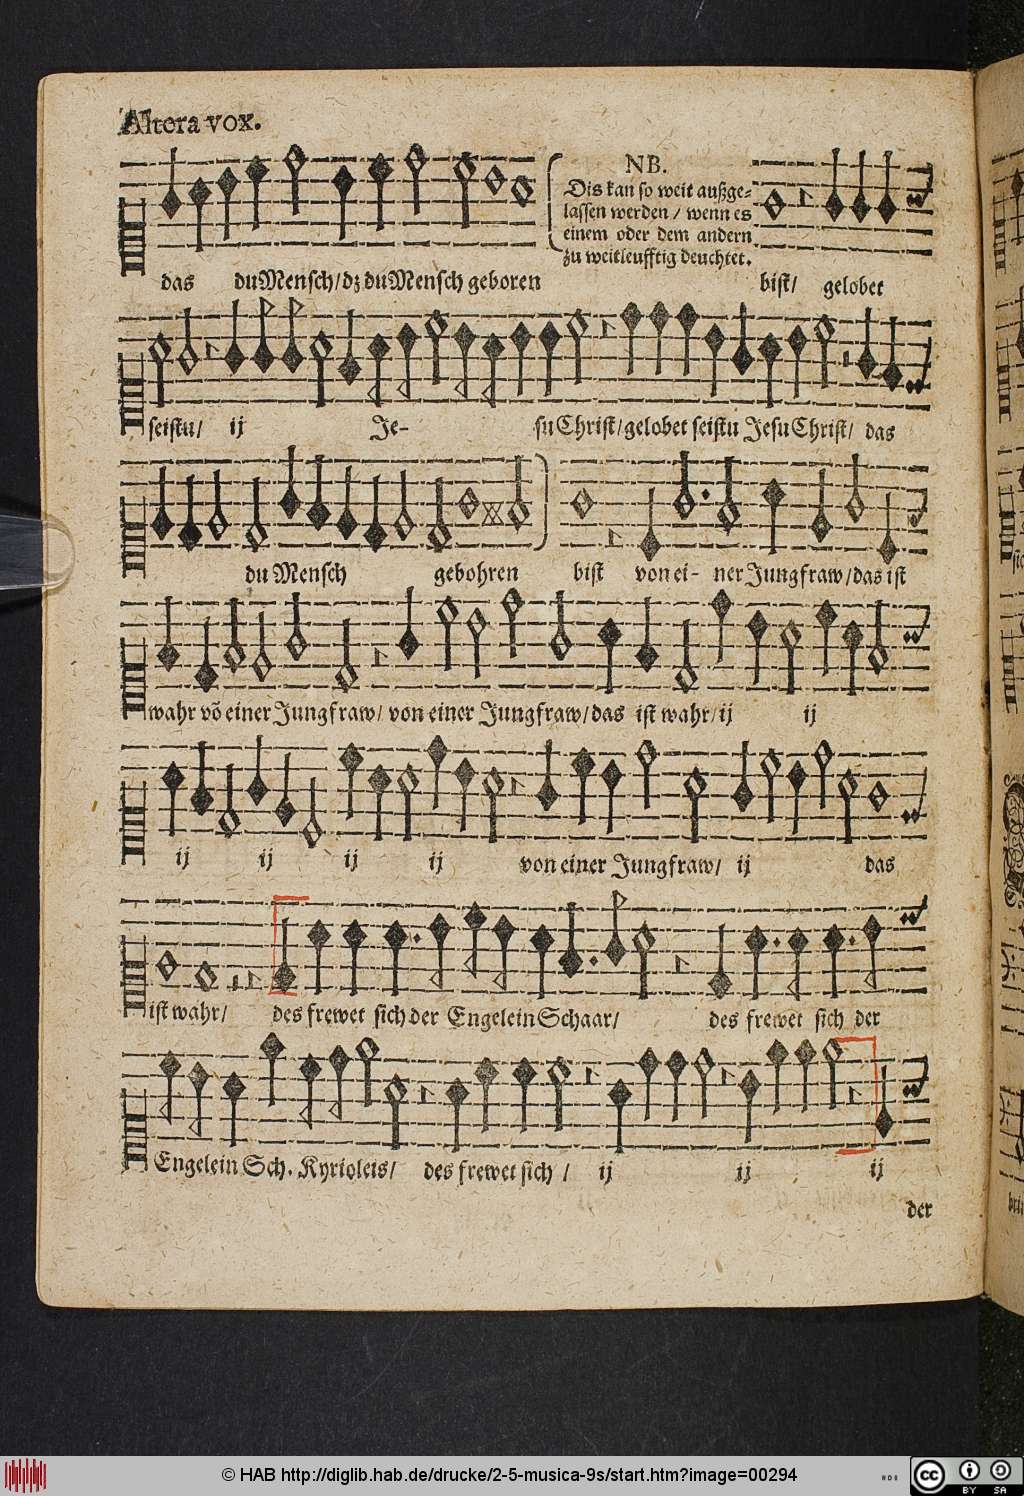 Altera vox.
NB.
Dis kan so weit außge-
lassen werden / wenn es
einem oder dem andern
zu weitleufftig deuchtet.
das du Mensch / dz du Mensch geboren bist / gelobet
seistu / ij Je- su Christ / gelobet seistu Jesu Christ / das
du Mensch gebohren bist von ei- ner Jungfraw / das ist
wahr võ einer Jungfraw / von einer Jungfraw / das ist wahr / ij ij
ij ij ij ij von einer Jungfraw / ij das
ist wahr / des frewet sich der Engelein Schaar / des frewet sich der
Engelein Sch. Kyrioleis / des frewet sich / ij ij ij
der
© HAB http://diglib.hab.de/drucke/2-5-musica-9s/start.htm?image=00294
cc BY SA